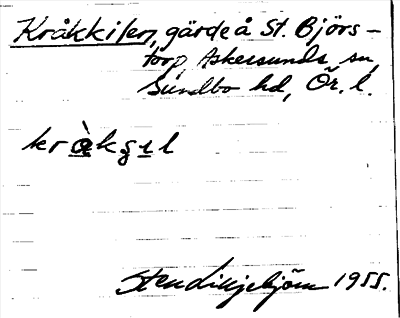 Kråkkilen, gärde å St. Björs-
torp, Askersunds sn,
Sundbo hd, Ör. l.
kràkʂɩl
Sten Liljebjörn 1955.